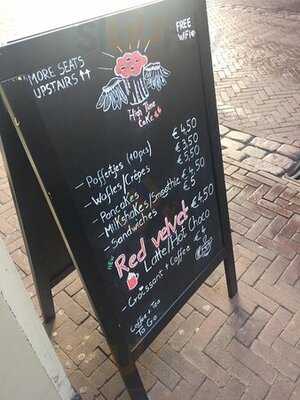 FREE
WiFi
MORE SEATS
UPSTAIRS ↑↑
High Time
Cake
- Poffertjes (10pcs) € 4,50
- Waffles/Crêpes € 3,50
- Pancakes € 5,50
- Milkshakes/Smoothie € 4,50
- Sandwiches € 5
Red velvet € 4,50
Latte/Hot Choco
- Croissant + Coffee € 4
Coffee + Tea
To Go